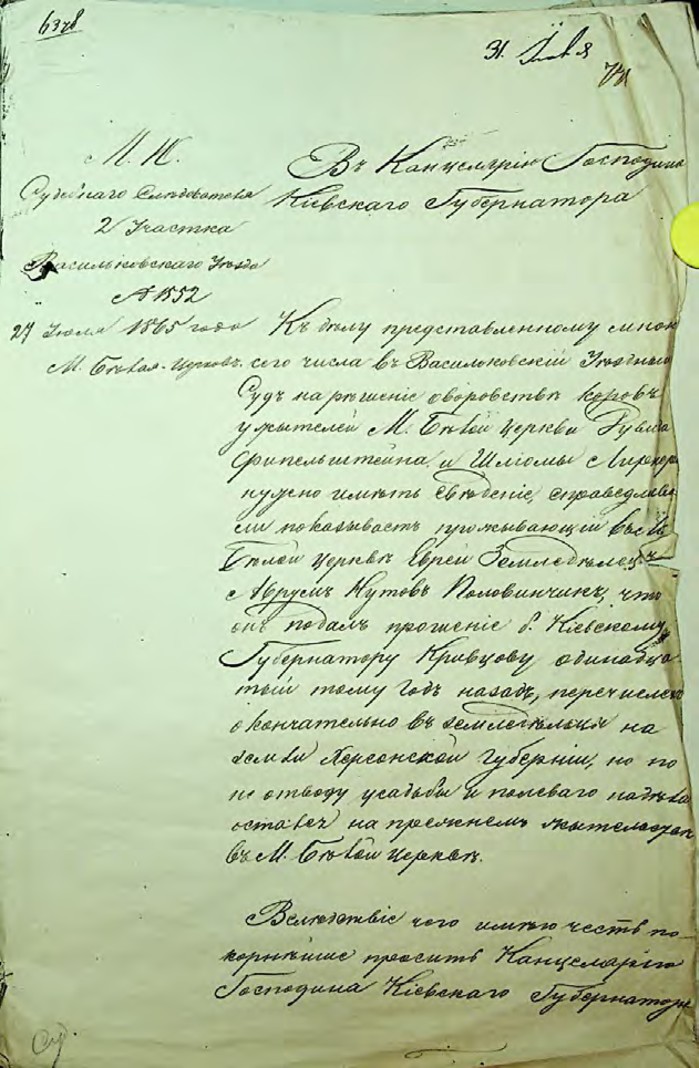 6378
31. Июля
М. Ю.
Судебнаго Следователя
2 Участка
Васильковскаго Уезда
№ 1552
27 Июля 1865 года
М. Белая-Церковь.
Въ Канцелярію Господина
Кіевскаго Губернатора
Къ делу представленному мною
сего числа въ Васильковскій Уездный
Судъ на решеніе о воровстве коровъ
у жителей М. Белой Церкви
Финельштейна и Шліомы
нужно иметь сведеніе, справедливо
ли показываетъ проживающій въ М.
Белой Церкве Еврей Земледелецъ
Аврумъ Нутовъ Половинчикъ, что
онъ подалъ прошеніе б. Кіевскому
Губернатору Кривцову одинадца-
тый тому годъ назадъ, перечисленъ
окончательно въ земледельцы на
земли Херсонской Губерніи, но по
не отводу усадьбы и полеваго надела
остался на прежнемъ жительстве
въ М. Белой Церкве.
Вследствіе чего имею честь по-
корнейше просить Канцелярію
Господина Кіевскаго Губернатора